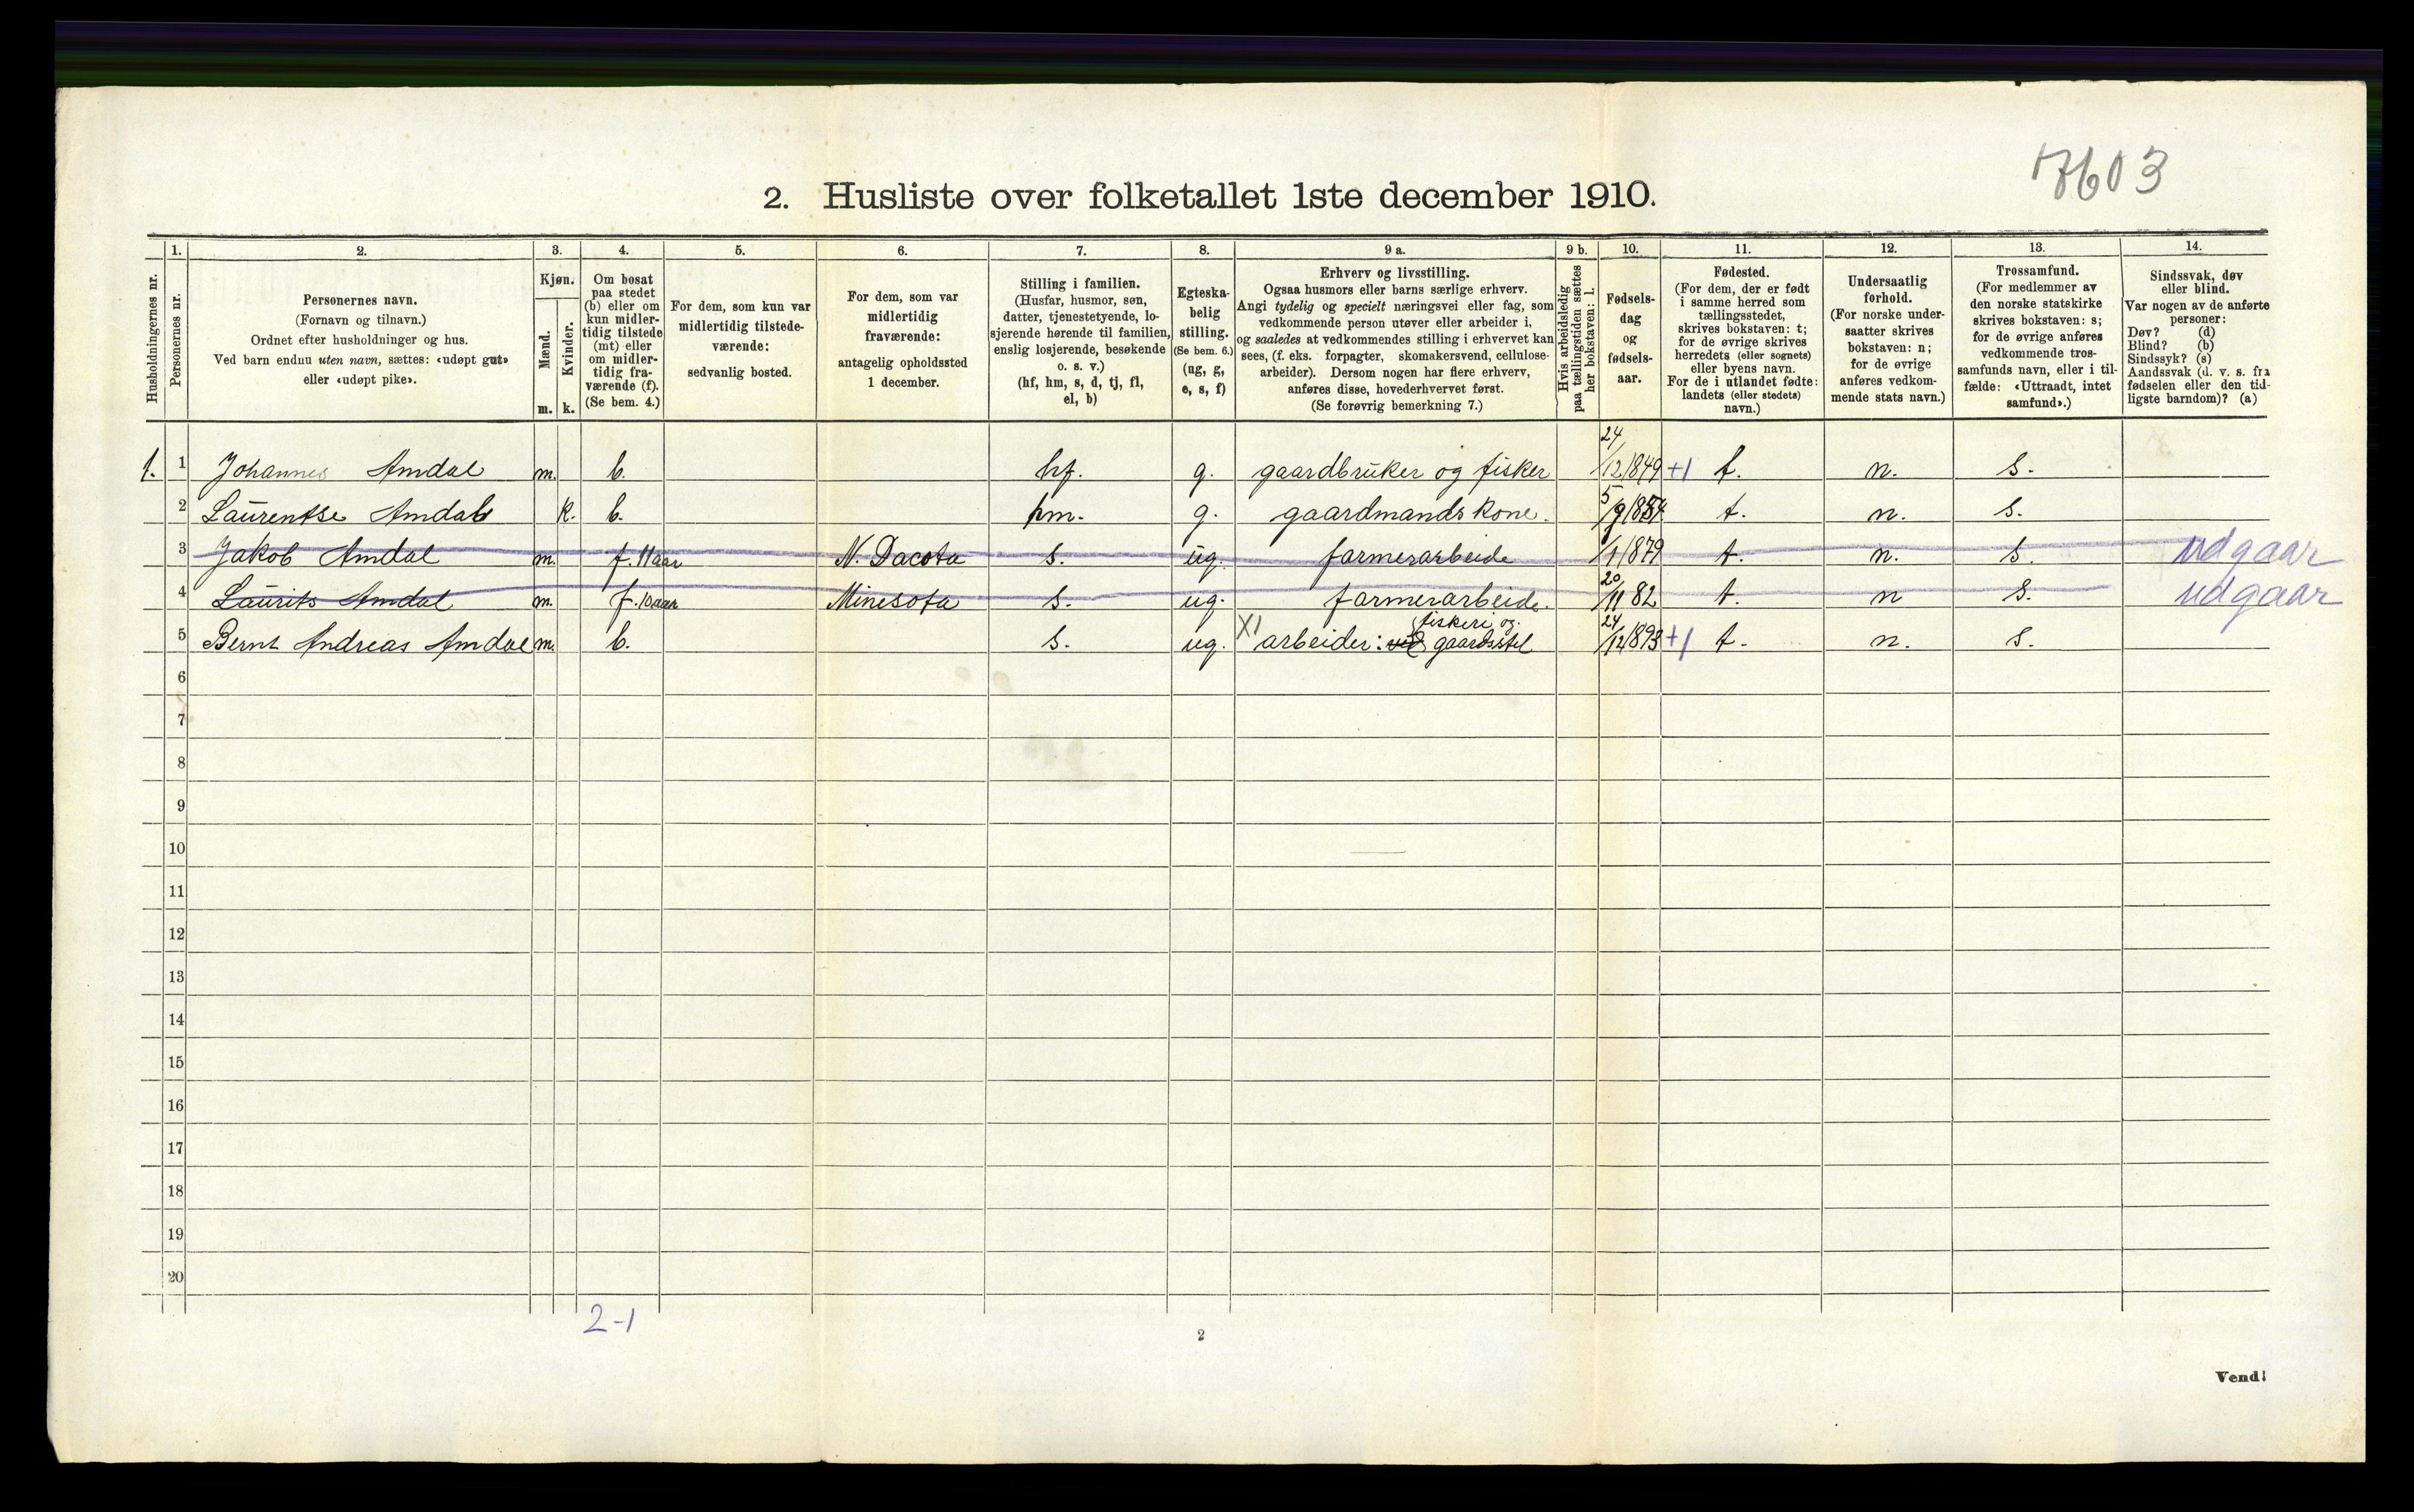 7603
2. Husliste over folketallet 1ste december 1910.
Husholdningernes nr.
1.
Personernes nr.
2.
Personernes navn.
(Fornavn og tilnavn.)
Ordnet efter husholdninger og hus.
Ved barn endnu uten navn, sættes: «udøpt gut»
eller «udøpt pike».
3.
Kjøn.
Mænd.
m.
Kvinder.
k.
4.
Om bosat
paa stedet
(b) eller om
kun midler-
tidig tilstede
(mt) eller
om midler-
tidig fra-
værende (f).
(Se bem. 4.)
5.
For dem, som kun var
midlertidig tilstede-
værende:
sedvanlig bosted.
6.
For dem, som var
midlertidig
fraværende:
antagelig opholdssted
1 december.
7.
Stilling i familien.
(Husfar, husmor, søn,
datter, tjenestetyende, lo-
sjerende hørende til familien,
enslig losjerende, besøkende
o. s. v.)
(hf, hm, s, d, tj, fl,
el, b)
8.
Egteska-
belig
stilling.
(Se bem. 6.)
(ug, g,
e, s, f)
9 a.
Erhverv og livsstilling.
Ogsaa husmors eller barns særlige erhverv.
Angi tydelig og specielt næringsvei eller fag, som
vedkommende person utøver eller arbeider i,
og saaledes at vedkommendes stilling i erhvervet kan
sees, (f. eks. forpagter, skomakersvend, cellulose-
arbeider). Dersom nogen har flere erhverv,
anføres disse, hovederhvervet først.
(Se forøvrig bemerkning 7.)
9 b.
Hvis arbeidsledig
paa tællingstiden sættes
her bokstaven: l.
10.
Fødsels-
dag
og
fødsels-
aar.
11.
Fødested.
(For dem, der er født
i samme herred som
tællingsstedet,
skrives bokstaven: t;
for de øvrige skrives
herredets (eller sognets)
eller byens navn.
For de i utlandet fødte:
landets (eller stedets)
navn.)
12.
Undersaatlig
forhold.
(For norske under-
saatter skrives
bokstaven: n;
for de øvrige
anføres vedkom-
mende stats navn.)
13.
Trossamfund.
(For medlemmer av
den norske statskirke
skrives bokstaven: s;
for de øvrige anføres
vedkommende tros-
samfunds navn, eller i til-
fælde: «Uttraadt, intet
samfund».)
14.
Sindssvak, døv
eller blind.
Var nogen av de anførte
personer:
Døv? (d)
Blind? (b)
Sindssyk? (s)
Aandssvak (d. v. s. fra
fødselen eller den tid-
ligste barndom)? (a)
1. 1 Johannes Amdal m. b. hf. g. gaardbruker og fisker 24/12/1849 +1 t. n. s.
2 Laurentse Amdal k. b. hm. g. gaardmandskone. 5/9/1854 t. n. s.
3 Jakob Amdal m. f. 11 aar N. Dacota s. ug. farmerarbeide /1/1879 t. n. s. udgaar
4 Laurits Amdal m. f. 10 aar Minesota s. ug. farmerarbeide. 20/11 82 t. n s. udgaar
fiskeri og.
5 Bernt Andreas Amdal m. b. s. ug. XI arbeider: ved gaardsstel 24/12/893 +1 t. n. s.
6
7
8
9
10
11
12
13
14
15
16
17
18
19
20
2-1
2
Vend!